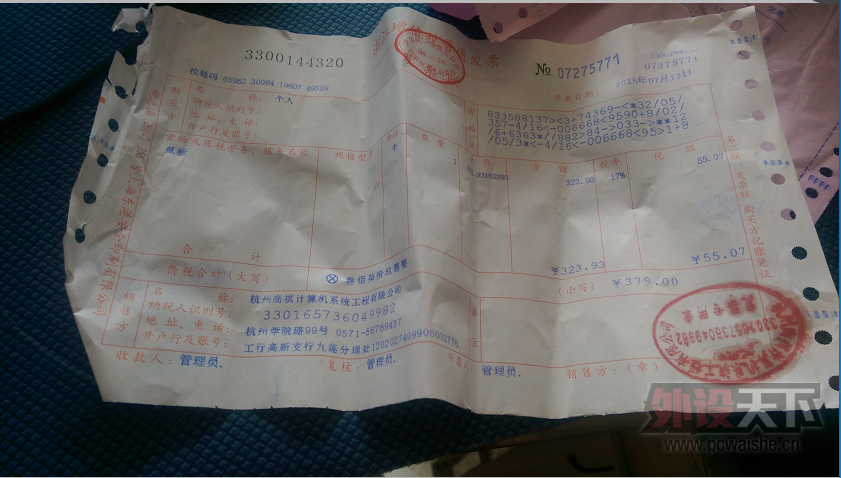 3300144320
浙江增值税普通发票
№ 07275771
3300144320
07275771
校验码 65962 30984 19607 49539
开票日期: 2015年07月12日
购买方
名 称: 个人
纳税人识别号:
地址、电话:
开户行及账号:
833588137><3+74369-<*32/05/
357-4/16<-006668<9590+8/02/
/6+6363*//882>84->033->**12
/05/3*<-4/16<-006668<95>1+8
货物或应税劳务、服务名称 规格型号 单位 数量 单价 金额 税率 税额
鼠标 个 1 323.93162393 323.93 17% 55.07
合 计 ¥323.93 ¥55.07
价税合计(大写) ⊗ 叁佰柒拾玖圆整 (小写) ¥379.00
销售方
名 称: 杭州商祺计算机系统工程有限公司
纳税人识别号: 330165736049982
地址、电话: 杭州学院路99号 0571-56768437
开户行及账号: 工行高新支行九莲分理处1202027409900002776
备注
收款人: 管理员.
复核: 管理员.
开票人: 管理员.
销售方:(章)
第二联 发票联 购买方记账凭证
330165736049982
发票专用章
外设天下
www.pcwaishe.cn